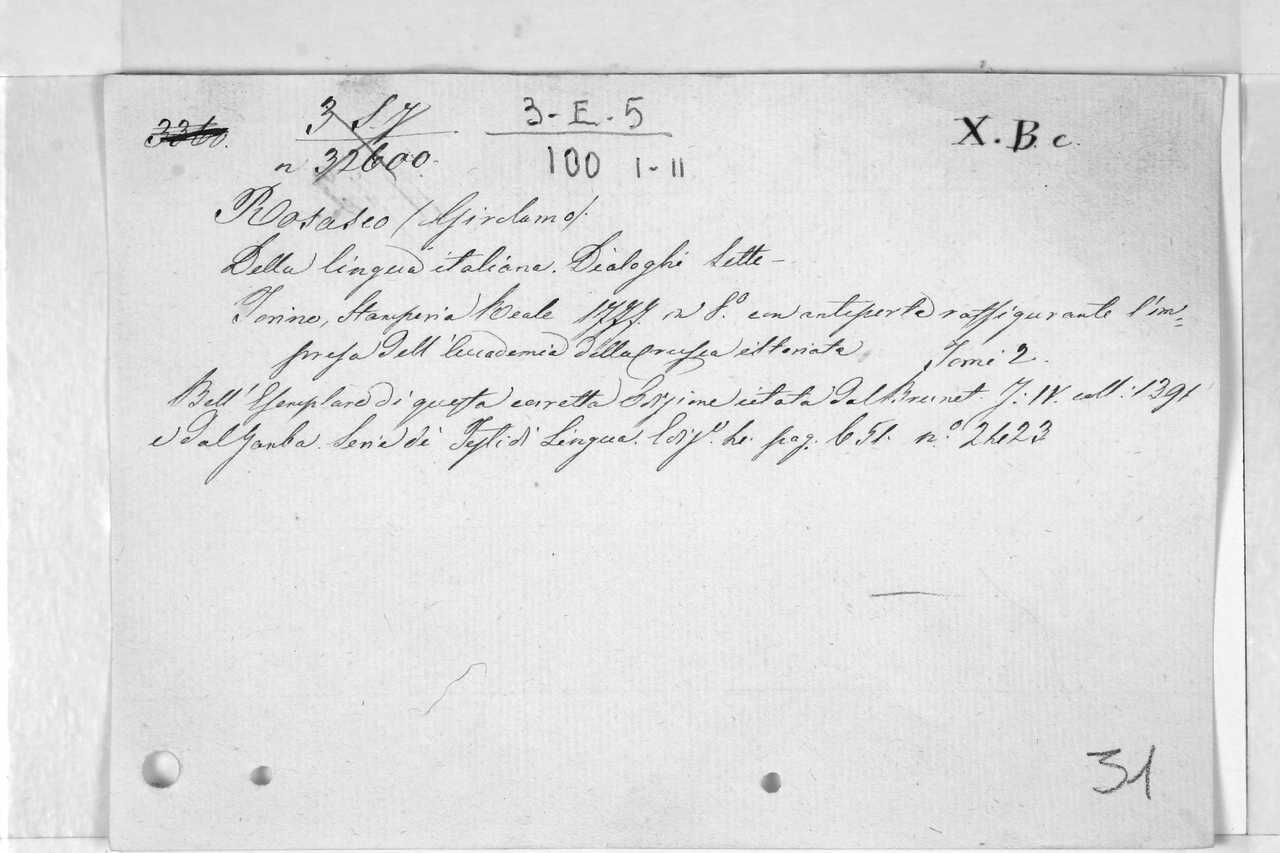 3360.
3 S. 7
n 32600.
3 - E. - 5
100 I - II
X. B. c.
Rosasco (Girolamo).
Della lingua italiana. Dialoghi Sette -
Torino, Stamperia Reale 1777. in 8.º con antiporta raffigurante l'im=
presa dell'Accademia della Crusca istoriata Tomi 2.
Bell'Esemplare di questa corretta Edizione citata dal Brunet. T. IV. coll: 1391
e dal Gamba. Serie di Testi di Lingua. Ediz.e 4. pag. 651. n.º 2423
31